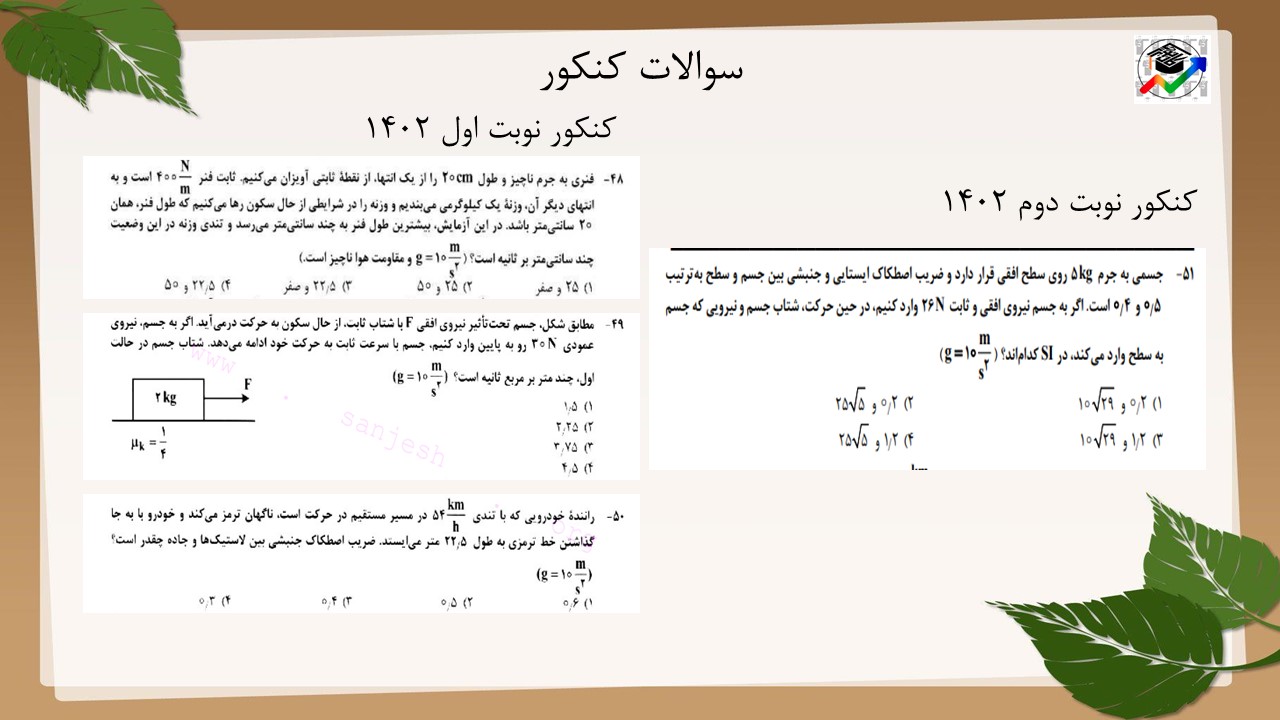 سوالات کنکور
کنکور نوبت اول ۱۴۰۲
۴۸- فنری به جرم ناچیز و طول ۲۰cm را از یک انتها، از نقطهٔ ثابتی آویزان می‌کنیم. ثابت فنر ۴۰۰ N/m است و به
انتهای دیگر آن، وزنهٔ یک کیلوگرمی می‌بندیم و وزنه را در شرایطی از حال سکون رها می‌کنیم که طول فنر، همان
۲۰ سانتی‌متر باشد. در این آزمایش، بیشترین طول فنر به چند سانتی‌متر می‌رسد و تندی وزنه در این وضعیت
چند سانتی‌متر بر ثانیه است؟ (g = ۱۰ m/s² و مقاومت هوا ناچیز است.)
۱) ۲۵ و صفر ۲) ۲۵ و ۵۰ ۳) ۲۲٫۵ و صفر ۴) ۲۲٫۵ و ۵۰
۴۹- مطابق شکل، جسم تحت‌تأثیر نیروی افقی F با شتاب ثابت، از حال سکون به حرکت درمی‌آید. اگر به جسم، نیروی
عمودی ۳۰N رو به پایین وارد کنیم، جسم با سرعت ثابت به حرکت خود ادامه می‌دهد. شتاب جسم در حالت
اول، چند متر بر مربع ثانیه است؟ (g = ۱۰ m/s²)
۱) ۱٫۵
۲) ۲٫۲۵
۳) ۳٫۷۵
۴) ۴٫۵
۲kg
F
μk = ۱/۴
www
sanjesh
۵۰- رانندهٔ خودرویی که با تندی ۵۴ km/h در مسیر مستقیم در حرکت است، ناگهان ترمز می‌کند و خودرو با به جا
گذاشتن خط ترمزی به طول ۲۲٫۵ متر می‌ایستد. ضریب اصطکاک جنبشی بین لاستیک‌ها و جاده چقدر است؟
(g = ۱۰ m/s²)
۱) ۰٫۶ ۲) ۰٫۵ ۳) ۰٫۴ ۴) ۰٫۳
کنکور نوبت دوم ۱۴۰۲
۵۱- جسمی به جرم ۵kg روی سطح افقی قرار دارد و ضریب اصطکاک ایستایی و جنبشی بین جسم و سطح به‌ترتیب
۰٫۵ و ۰٫۴ است. اگر به جسم نیروی افقی و ثابت ۲۶N وارد کنیم، در حین حرکت، شتاب جسم و نیرویی که جسم
به سطح وارد می‌کند، در SI کدام‌اند؟ (g = ۱۰ m/s²)
۱) ۰٫۲ و ۱۰√۲۹ ۲) ۰٫۲ و ۲۵√۵
۳) ۱٫۲ و ۱۰√۲۹ ۴) ۱٫۲ و ۲۵√۵